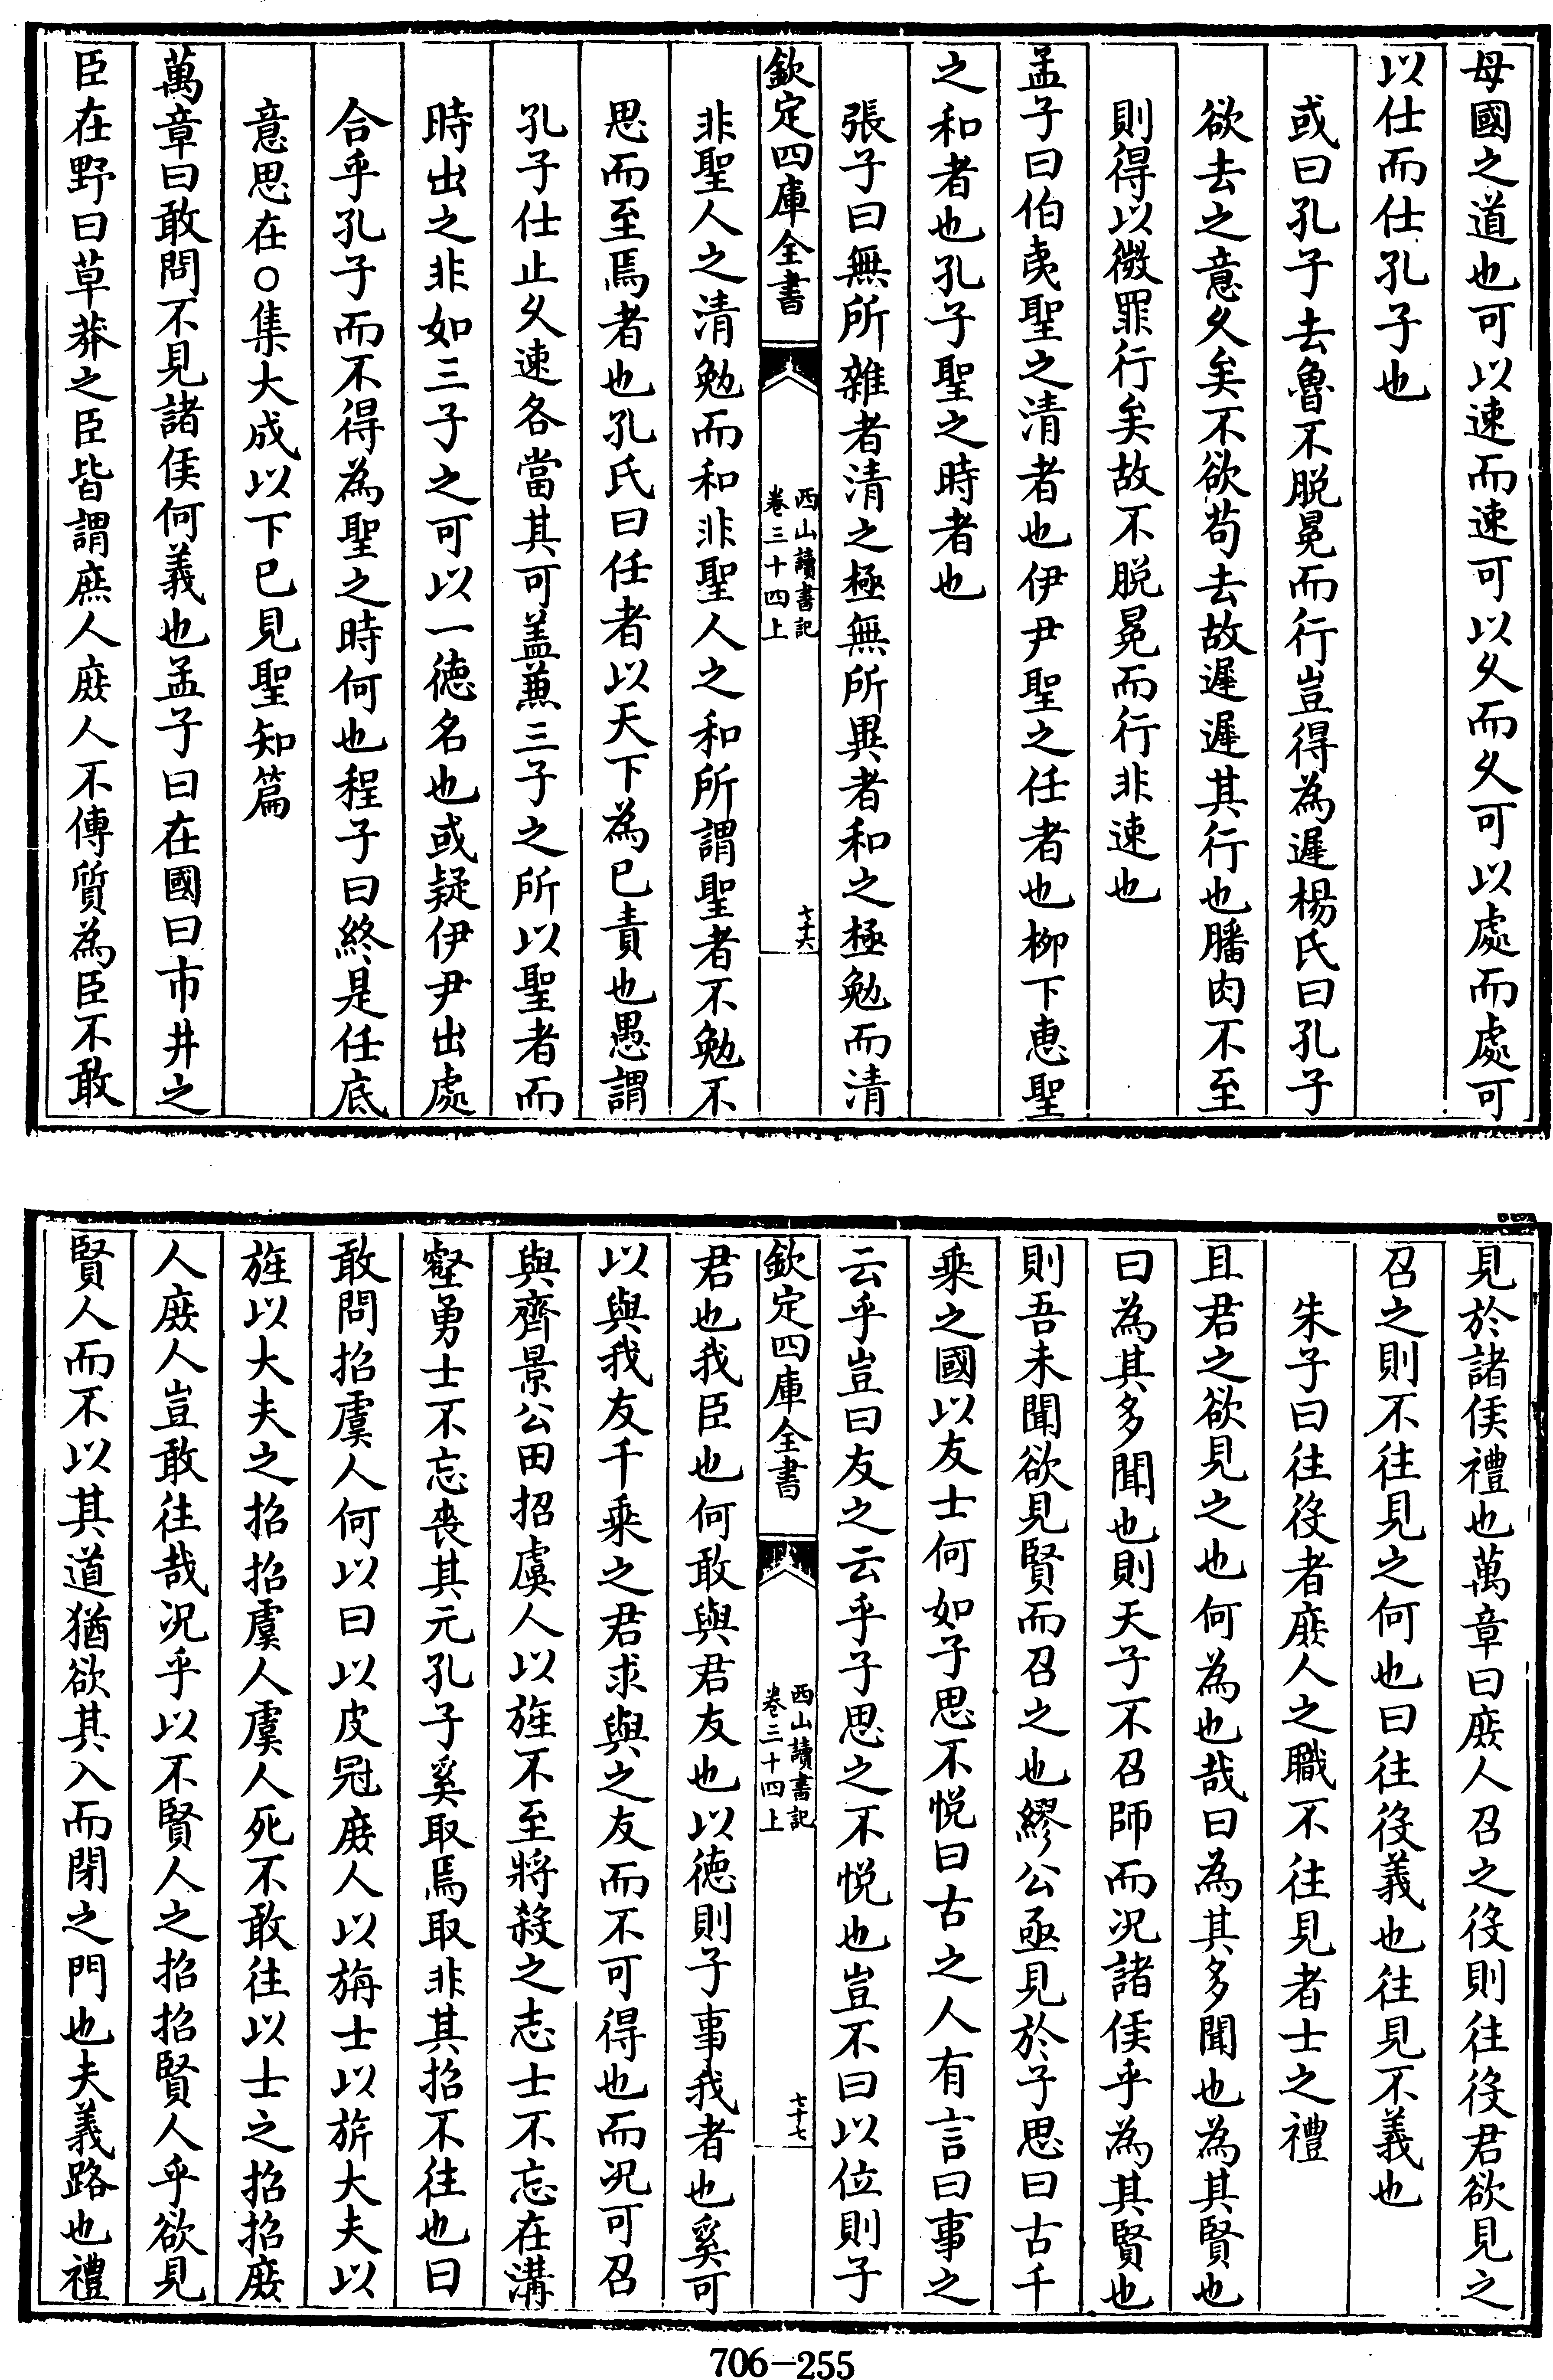 母國之道也可以速而速可以久而久可以處而處可
以仕而仕孔子也
或曰孔子去魯不脱冕而行豈得為遲楊氏曰孔子
欲去之意久矣不欲苟去故遲遲其行也膰肉不至
則得以微罪行矣故不脱冕而行非速也
孟子曰伯夷聖之清者也伊尹聖之任者也柳下惠聖
之和者也孔子聖之時者也
張子曰無所雜者清之極無所異者和之極勉而清
欽定四庫全書
西山讀書記
卷三十四上
七十六
非聖人之清勉而和非聖人之和所謂聖者不勉不
思而至焉者也孔氏曰任者以天下為已責也愚謂
孔子仕止久速各當其可盖兼三子之所以聖者而
時出之非如三子之可以一徳名也或疑伊尹出處
合乎孔子而不得為聖之時何也程子曰終是任底
意思在○集大成以下已見聖知篇
萬章曰敢問不見諸侯何義也孟子曰在國曰市井之
臣在野曰草莽之臣皆謂庶人庶人不傳質為臣不敢
見於諸侯禮也萬章曰庶人召之役則往役君欲見之
召之則不往見之何也曰往役義也往見不義也
朱子曰往役者庶人之職不往見者士之禮
且君之欲見之也何為也哉曰為其多聞也為其賢也
曰為其多聞也則天子不召師而况諸侯乎為其賢也
則吾未聞欲見賢而召之也繆公亟見於子思曰古千
乘之國以友士何如子思不悦曰古之人有言曰事之
云乎豈曰友之云乎子思之不悦也豈不曰以位則子
欽定四庫全書
西山讀書記
卷三十四上
七十七
君也我臣也何敢與君友也以徳則子事我者也奚可
以與我友千乘之君求與之友而不可得也而况可召
與齊景公田招虞人以旌不至將殺之志士不忘在溝
壑勇士不忘喪其元孔子奚取焉取非其招不往也曰
敢問招虞人何以曰以皮冠庶人以旃士以旂大夫以
旌以大夫之招招虞人虞人死不敢往以士之招招庶
人庶人豈敢往哉况乎以不賢人之招招賢人乎欲見
賢人而不以其道猶欲其入而閉之門也夫義路也禮
706-255